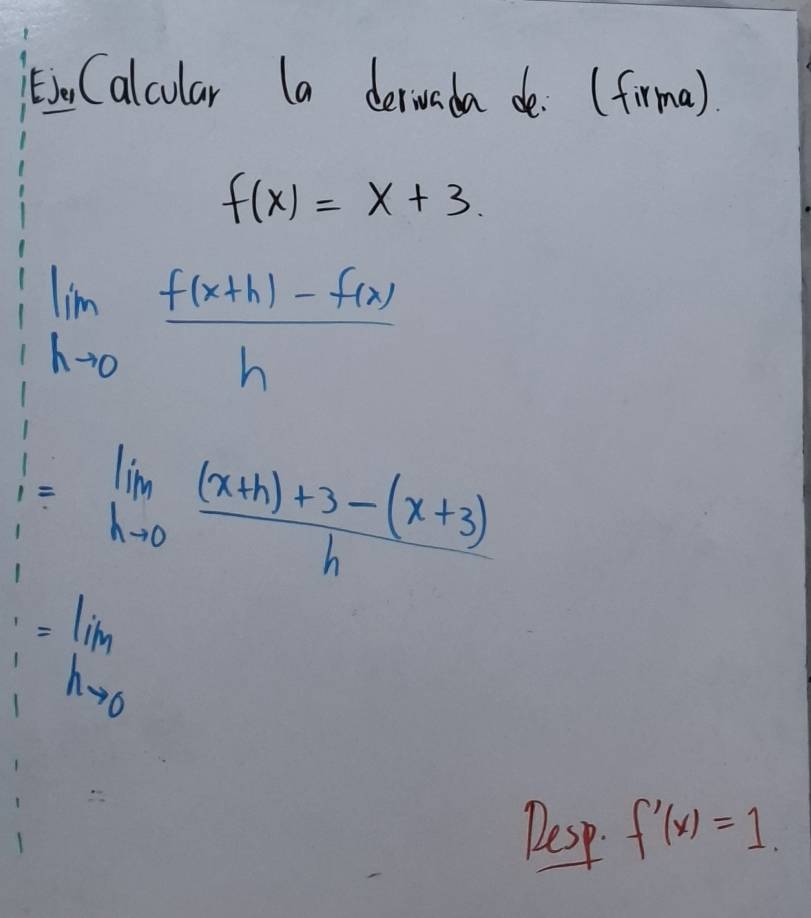 Eje, Calcular la derivada de: (firma).
f(x) = x + 3.
lim f(x+h) - f(x)
h→0 h
= lim (x+h) + 3 - (x+3)
h→0 h
= lim
h→0
=
Desp. f'(x) = 1.